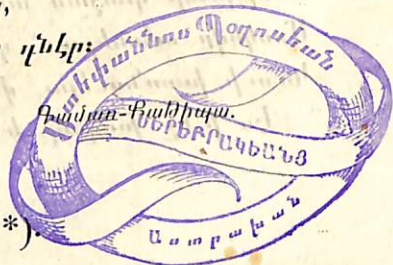 դներ։
Ստեփաննոս Պօղոսեան
Գամառ-Քաթիպա.
ՍԵՐԵԲՐԱԿԵԱՆՑ
Աստրախան
*)